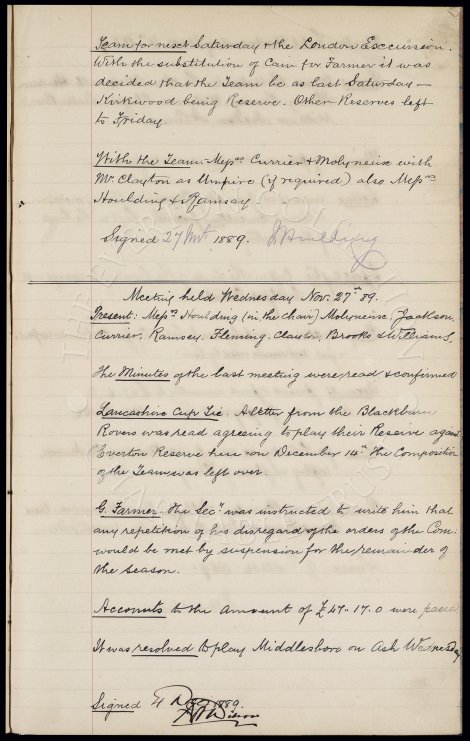 Team for next Saturday & the London Excursion.
With the substitution of Cain for Farmer it was
decided that the Team be as last Saturday —
Kirkwood being Reserve. Other Reserves left
to Friday
With the Team:- Messrs Currier & Molyneux with
Mr. Clayton as Umpire (if required) also Messrs
Houlding & Ramsay
Signed 27 Nov 1889. J Houlding
Meeting held Wednesday Nov. 27th 89.
Present: Messrs Houlding (in the chair) Molyneux, Jackson,
Currier, Ramsey, Fleming, Clayton, Brooks & Williams,
The Minutes of the last meeting were read & confirmed
Lancashire Cup Tie. A letter from the Blackburn
Rovers was read agreeing to play their Reserve against
Everton Reserve here on December 14th. The Composition
of the Team was left over.
G. Farmer. The Secy was instructed to write him that
any repetition of his disregard of the orders of the Com:
would be met by suspension for the remainder of
the season.
Accounts to the amount of £47-17.0 were passed
It was resolved to play Middlesboro on Ash Wednesday
Signed 4 Dec 1889.